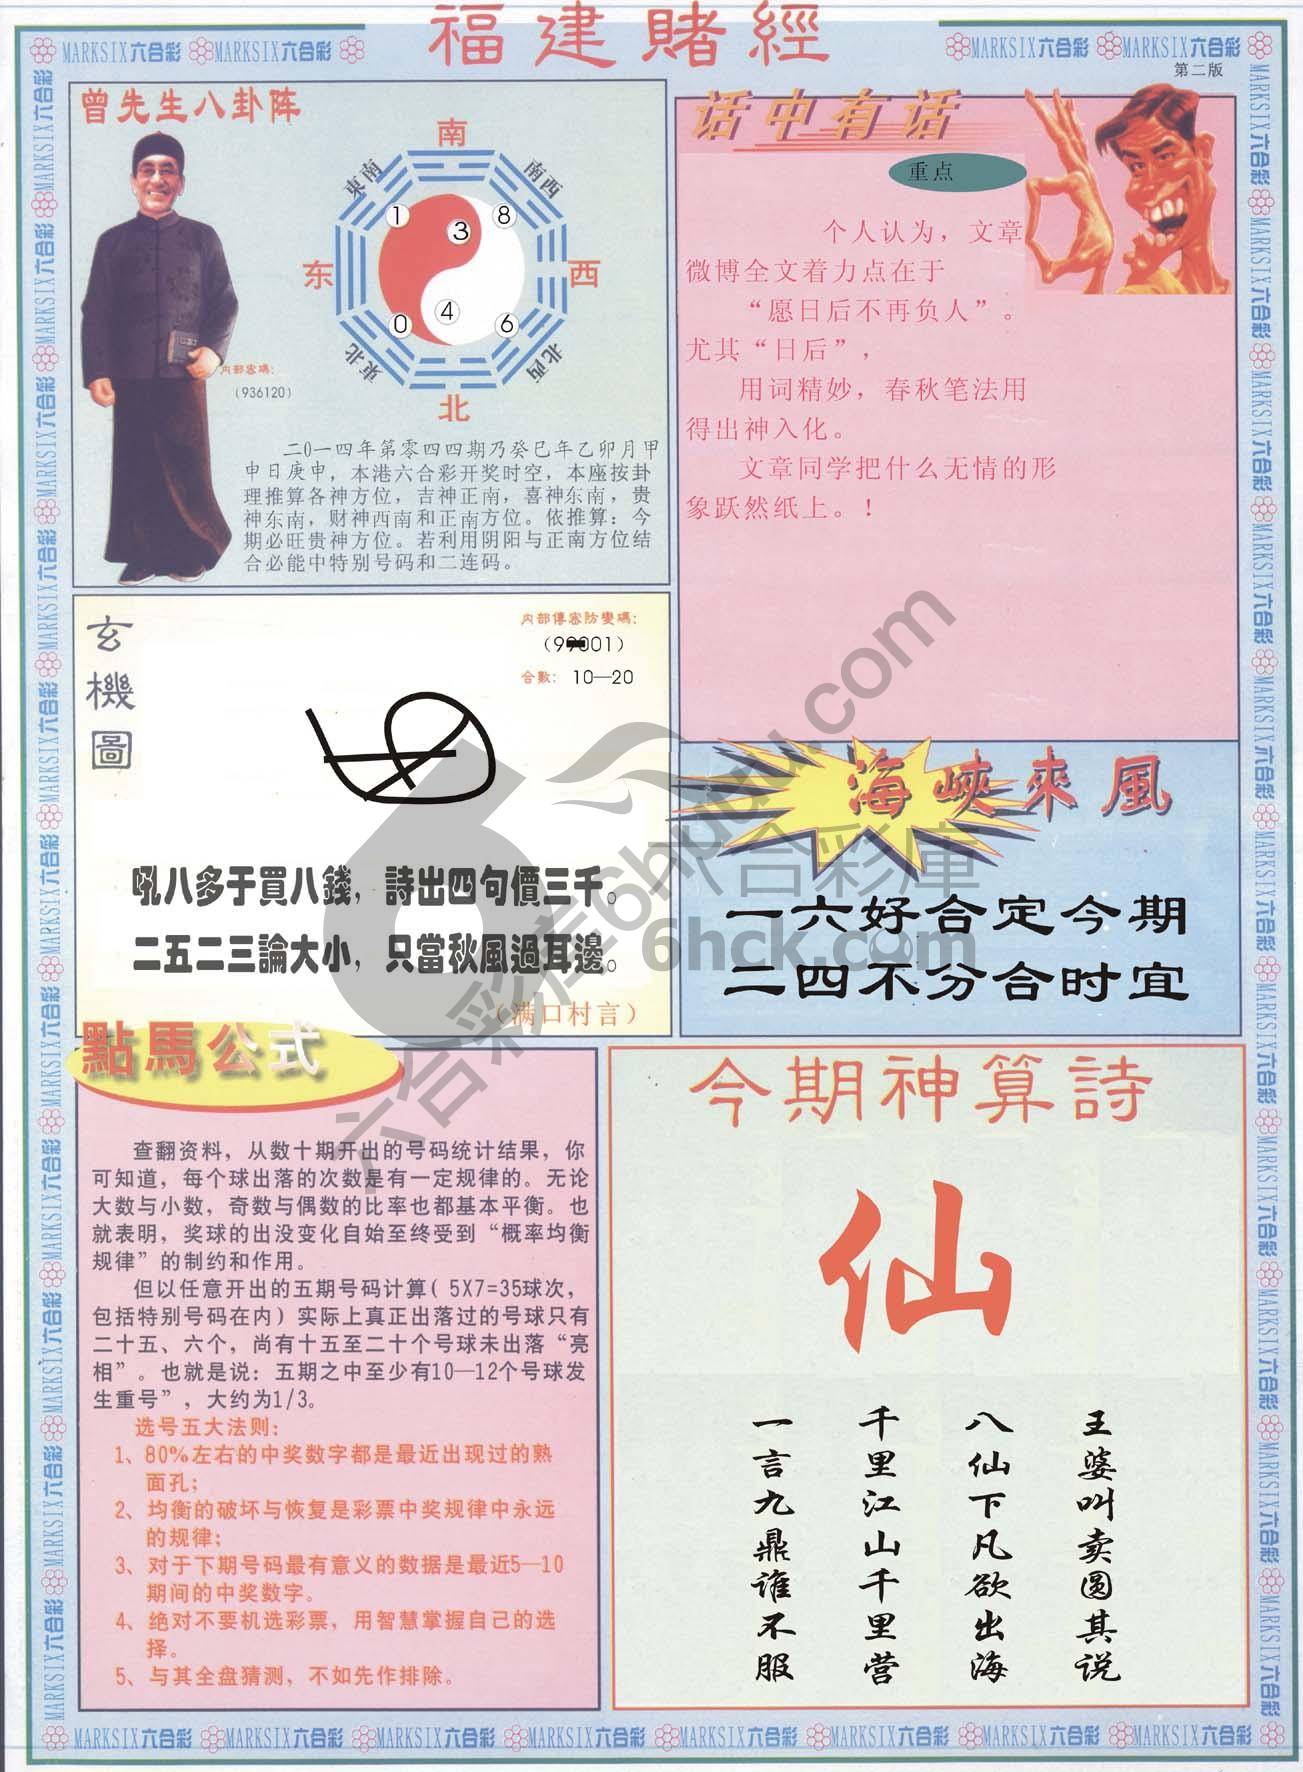 福建賭經
MARKSIX六合彩 MARKSIX六合彩
MARKSIX六合彩 MARKSIX六合彩
第二版
曾先生八卦阵
南
東南
南西
1
8
3
东
西
4
0
6
東北
北西
北
内部密碼:
(936120)
二0一四年第零四四期乃癸巳年乙卯月甲
申日庚申，本港六合彩开奖时空，本座按卦
理推算各神方位，吉神正南，喜神东南，贵
神东南，财神西南和正南方位。依推算：今
期必旺贵神方位。若利用阴阳与正南方位结
合必能中特别号码和二连码。
话中有话
重点
个人认为，文章
微博全文着力点在于
“愿日后不再负人”。
尤其“日后”，
用词精妙，春秋笔法用
得出神入化。
文章同学把什么无情的形
象跃然纸上。！
玄機圖
内部傳密防變碼:
合數: 10—20
吼八多于買八錢，詩出四句價三千。
二五二三論大小，只當秋風過耳邊。
（满口村言）
海峽來風
一六好合定今期
二四不分合时宜
點馬公式
查翻资料，从数十期开出的号码统计结果，你
可知道，每个球出落的次数是有一定规律的。无论
大数与小数，奇数与偶数的比率也都基本平衡。也
就表明，奖球的出没变化自始至终受到“概率均衡
规律”的制约和作用。
但以任意开出的五期号码计算( 5X7=35球次，
包括特别号码在内）实际上真正出落过的号球只有
二十五、六个，尚有十五至二十个号球未出落“亮
相”。也就是说：五期之中至少有10—12个号球发
生重号”，大约为1/3。
选号五大法则:
1、80%左右的中奖数字都是最近出现过的熟
面孔;
2、均衡的破坏与恢复是彩票中奖规律中永远
的规律;
3、对于下期号码最有意义的数据是最近5—10
期间的中奖数字。
4、绝对不要机选彩票，用智慧掌握自己的选
择。
5、与其全盘猜测，不如先作排除。
今期神算詩
仙
王婆叫卖圆其说
八仙下凡欲出海
千里江山千里营
一言九鼎谁不服
六合彩库6hdudu.com
六合彩庫
6hck.com
MARKSIX六合彩 MARKSIX六合彩 MARKSIX六合彩 MARKSIX六合彩 MARKSIX六合彩 MARKSIX六合彩 MARKSIX六合彩 MARKSIX六合彩